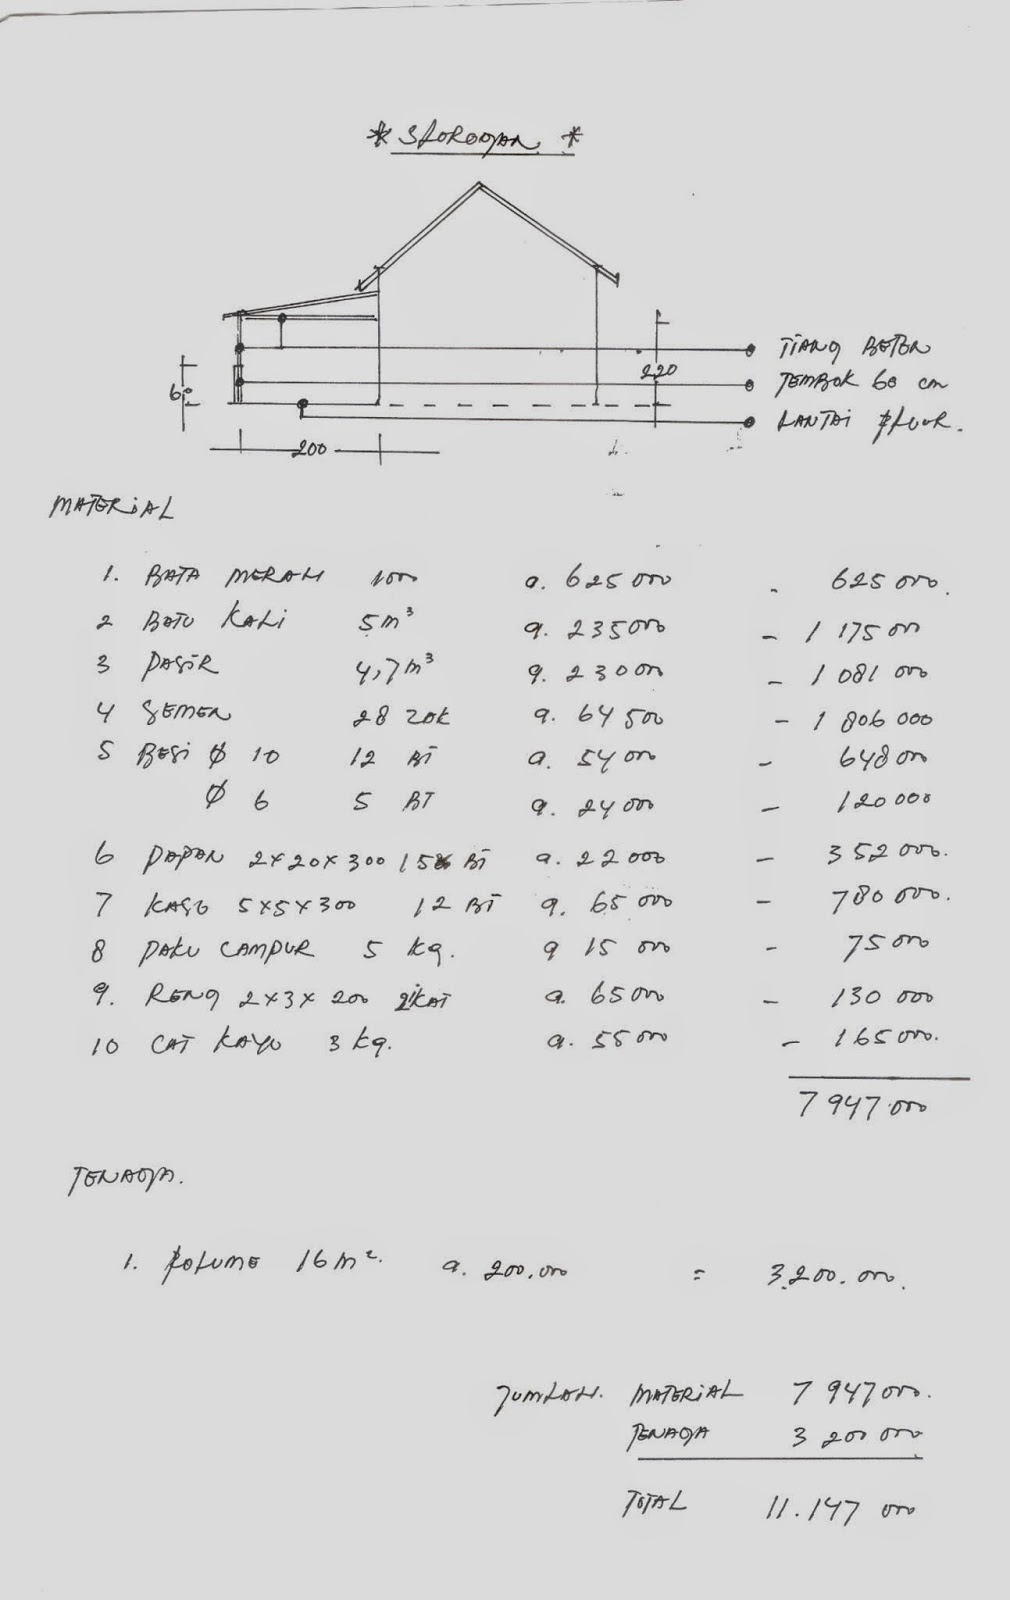 * SLOROGAN *
TIANG BETON
220
TEMBOK 60 cm
60
LANTAI FLUUR.
200
MATERIAL
1. BATA MERAH 1000 a. 625 000 - 625 000.
2 BATU KALI 5 m³ a. 235 000 - 1 175 000
3 PASIR 4,7 m³ a. 230 000 - 1 081 000
4 SEMEN 28 ZAK a. 64 500 - 1 806 000
5 BESI Ø 10 12 BT a. 54 000 - 648 000
Ø 6 5 BT a. 24 000 - 120 000
6 PAPAN 2x20x300 BT a. 22 000 - 352 000.
7 KASO 5x5x300 12 BT a. 65 000 - 780 000.
8 PAKU CAMPUR 5 kg. a 15 000 - 75 000
9. RENG 2x3x200 2 IKAT a. 65 000 - 130 000
10 CAT KAYU 3 kg. a. 55 000 - 165 000.
7 947 000
TENAGA.
1. VOLUME 16 m². a. 200.000 = 3.200.000.
JUMLAH. MATERIAL 7 947 000.
TENAGA 3 200 000
TOTAL 11.147 000